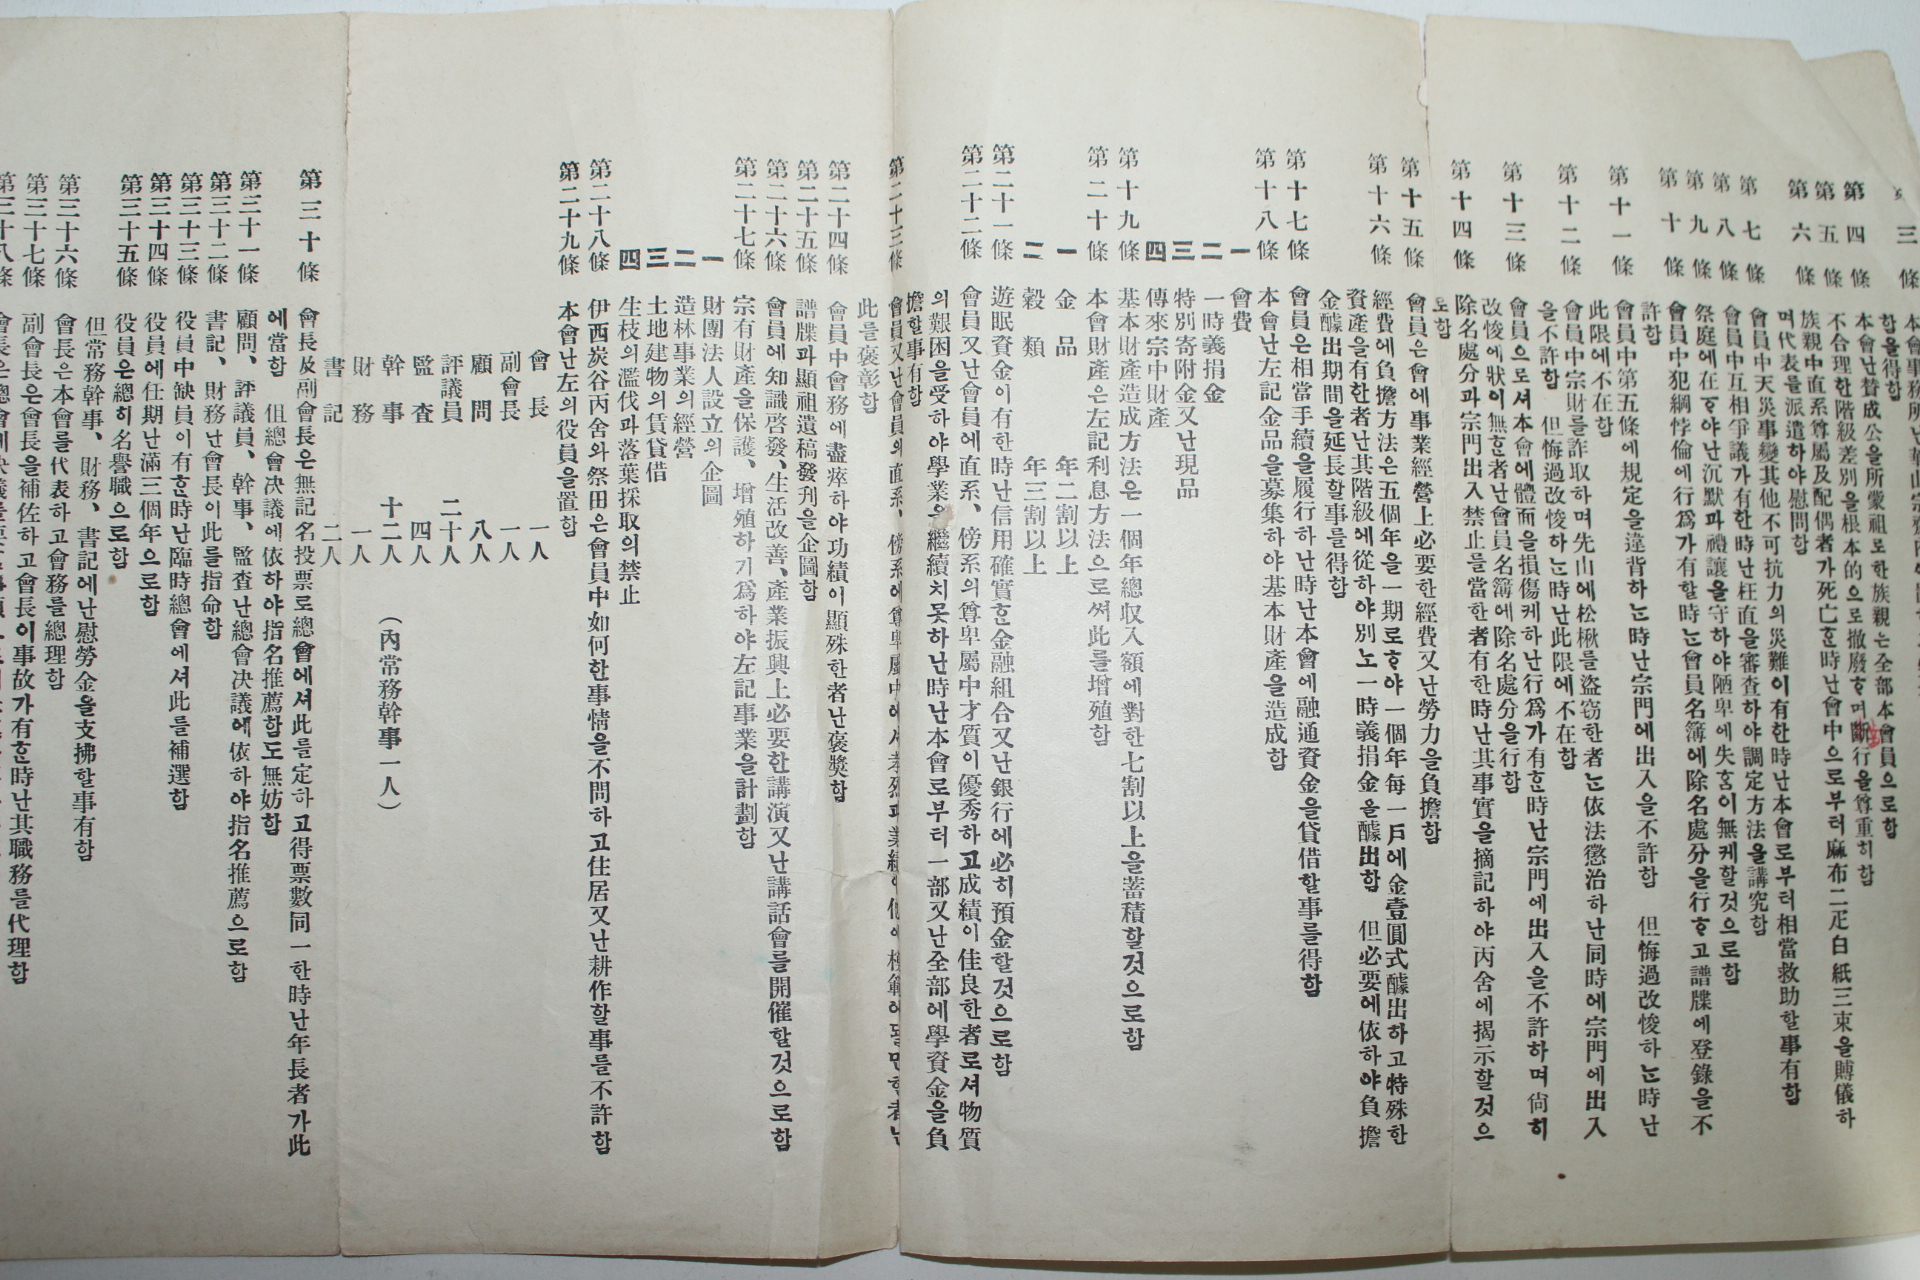 第四條 本會난賛成公을所蒙祖로한族親은全部本會員으로함
第五條 不合理한階級差別을根本的으로撤廢ᄒᆞ며斷行을尊重히함
第六條 族親中直系尊屬及配偶者가死亡ᄒᆞᆫ時난會中으로부터麻布二疋白紙三束을賻儀하
며代表를派遣하야慰問함
第七條 會員中天災事變其他不可抗力의災難이有한時난本會로부터相當救助할事有함
第八條 會員中互相爭議가有한時난枉直을審査하야調定方法을講究함
第九條 祭庭에在ᄒᆞ야난沉默과禮讓을守하야陋卑에失ᄒᆞᆷ이無케할것으로함
第十條 會員中犯綱悖倫에行爲가有할時ᄂᆞᆫ會員名簿에除名處分을行ᄒᆞ고譜牒에登錄을不
許함
第十一條 會員中第五條에規定을違背하ᄂᆞᆫ時난宗門에出入을不許함 但悔過改悛하ᄂᆞᆫ時난
此限에不在함
第十二條 會員中宗財를詐取하며先山에松楸를盜窃한者ᄂᆞᆫ依法懲治하난同時에宗門에出入
을不許함 但悔過改悛하ᄂᆞᆫ時난此限에不在함
第十三條 會員으로셔本會에體面을損傷케하난行爲가有ᄒᆞᆫ時난宗門에出入을不許하며尙히
改悛에狀이無ᄒᆞᆫ者난會員名簿에除名處分을行함
第十四條 除名處分과宗門出入禁止를當한者有한時난其事實을摘記하야丙舍에揭示할것으
로함
第十五條 會員은會에事業經營上必要한經費又난勞力을負擔함
第十六條 經費에負擔方法은五個年을一期로ᄒᆞ야一個年每一戶에金壹圓式醵出하고特殊한
資產을有한者난其階級에從하야別노一時義捐金을醵出함 但必要에依하야負擔
金醵出期間을延長할事를得함
第十七條 會員은相當手續을履行하난時난本會에融通資金을貸借할事를得함
第十八條 本會난左記金品을募集하야基本財產을造成함
一 會費
二 一時義捐金
三 特別寄附金又난現品
四 傳來宗中財產
第十九條 基本財產造成方法은一個年總収入額에對한七割以上을蓄積할것으로함
第二十條 本會財產은左記利息方法으로써此를增殖함
一 金品 年二割以上
二 穀類 年三割以上
第二十一條 遊眠資金이有한時난信用確實ᄒᆞᆫ金融組合又난銀行에必히預金할것으로함
第二十二條 會員又난會員에直系、傍系의尊卑屬中才質이優秀하고成績이佳良한者로셔物質
의艱困을受하야學業을繼續치못하난時난本會로부터一部又난全部에學資金을負
擔할事有함
第二十三條 會員又난會員의直系、傍系에尊卑屬中에서孝烈과業績이他에模範에될만한者는
此를褒彰함
第二十四條 會員中會務에盡瘁하야功績이顯殊한者난褒獎함
第二十五條 譜牒과顯祖遺稿發刋을企圖함
第二十六條 會員에知識啓發、生活改善、產業振興上必要한講演又난講話會를開催할것으로함
第二十七條 宗有財產을保護、增殖하기爲하야左記事業을計劃함
一 財團法人設立의企圖
二 造林事業의經營
三 土地建物의賃貸借
四 生枝의濫伐과落葉採取의禁止
第二十八條 伊西炭谷丙舍와祭田은會員中如何한事情을不問하고住居又난耕作할事를不許함
第二十九條 本會난左의役員을置함
會長 一人
副會長 一人
顧問 八人
評議員 二十人
監査 四人
幹事 十二人 (內常務幹事一人)
財務 一人
書記 二人
第三十條 會長及副會長은無記名投票로總會에셔此를定하고得票數同一한時난年長者가此
에當함 但總會决議에依하야指名推薦함도無妨함
第三十一條 顧問、評議員、幹事、監査난總會决議에依하야指名推薦으로함
第三十二條 書記、財務난會長이此를指命함
第三十三條 役員中缺員이有ᄒᆞᆫ時난臨時總會에셔此를補選함
第三十四條 役員에任期난滿三個年으로함
第三十五條 役員은總히名譽職으로함
但常務幹事、財務、書記에난慰勞金을支拂할事有함
第三十六條 會長은本會를代表하고會務를總理함
第三十七條 副會長은會長을補佐하고會長이事故가有ᄒᆞᆫ時난其職務를代理함
第三十八條